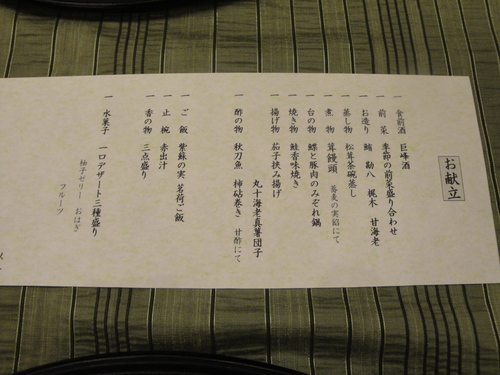 お献立
一 食前酒 巨峰酒
一 前菜 季節の前菜盛り合わせ
一 お造り 鮪 勘八 梶木 甘海老
一 蒸し物 松茸茶碗蒸し
一 煮物 茸饅頭 蕎麦の実餡にて
一 台の物 鰈と豚肉のみぞれ鍋
一 焼き物 鮭香味焼き
一 揚げ物 茄子挟み揚げ
丸十海老真薯団子
一 酢の物 秋刀魚 柿砧巻き 甘酢にて
一 ご飯 紫蘇の実 茗荷ご飯
一 止椀 赤出汁
一 香の物 三点盛り
一 水菓子 一口デザート三種盛り
柚子ゼリー おはぎ
フルーツ